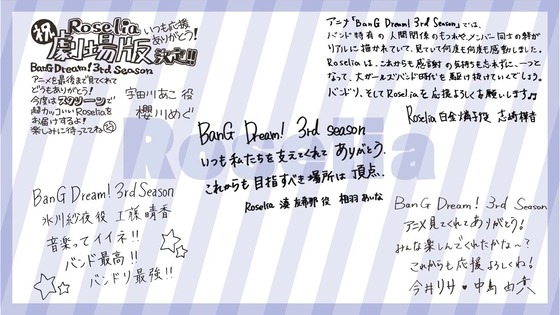 祝
Roselia
劇場版
決定!!
いつも応援
ありがとう!
BanG Dream! 3rd Season
アニメを最後まで見てくれて
どうもありがとう!
今度はスクリーンで
超カッコいいRoseliaを
お届けするよ!
楽しみに待っててね
宇田川あこ 役
櫻川めぐ
アニメ「BanG Dream! 3rd Season」では、
バンド特有の人間関係のもつれや、メンバー同士の絆が
リアルに描かれていて、見ていて何度も何度も感動しました。
Roseliaは、これからも感謝の気持ちを忘れずに、一つと
なって、大ガールズバンド時代を駆け抜けていくでしょう。
バンドリ、そしてRoseliaを応援よろしくお願いします♫
Roselia 白金燐子役 志崎樺音
BanG Dream! 3rd season
いつも私たちを支えてくれて ありがとう.
これからも 目指すべき場所は 頂点.
Roselia 湊 友希那 役 相羽 あいな
Roselia
BanG Dream! 3rd Season
氷川紗夜 役 工藤晴香
音楽ってイイネ!!
バンド最高!!
バンドリ最強!!
BanG Dream! 3rd Season
アニメ見てくれてありがとう!
みんな楽しんでくれたかな〜?
これからも応援よろしくね!
今井リサ・中島由貴